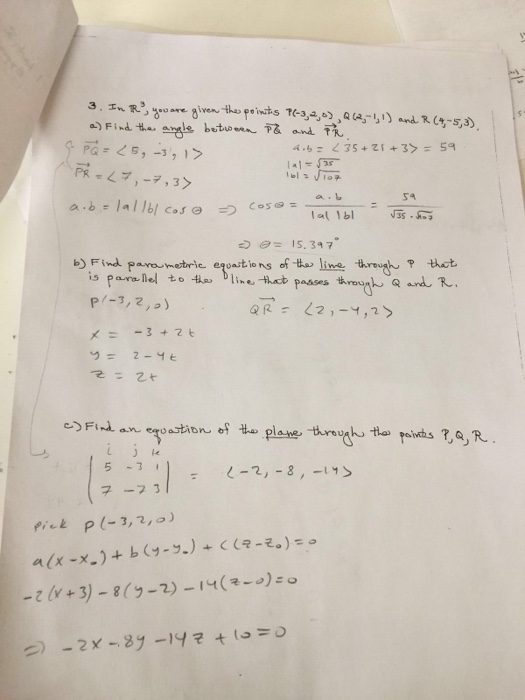 3. In R³, you are given the points P(-3,2,0), Q(2,-1,1) and R(4,-5,3).
a) Find the angle between PQ and PR.
PQ = <5, -3, 1>
a.b = <35+21+3> = 59
PR = <7, -7, 3>
|a| = √35
|b| = √107
a.b = |a| |b| cos θ ⇒ cos θ = a.b / |a| |b| = 59 / √35 . √107
⇒ θ = 15.397°
b) Find parametric equations of the line through P that
is parallel to the line that passes through Q and R.
P(-3, 2, 0)
QR = <2, -4, 2>
x = -3 + 2t
y = 2 - 4t
z = 2t
c) Find an equation of the plane through the points P, Q, R.
i j k
5 -3 1
7 -7 3
= <-2, -8, -14>
Pick P(-3, 2, 0)
a(x-x₀) + b(y-y₀) + c(z-z₀) = 0
-2(x+3) - 8(y-2) - 14(z-0) = 0
⇒ -2x - 8y - 14z + 10 = 0